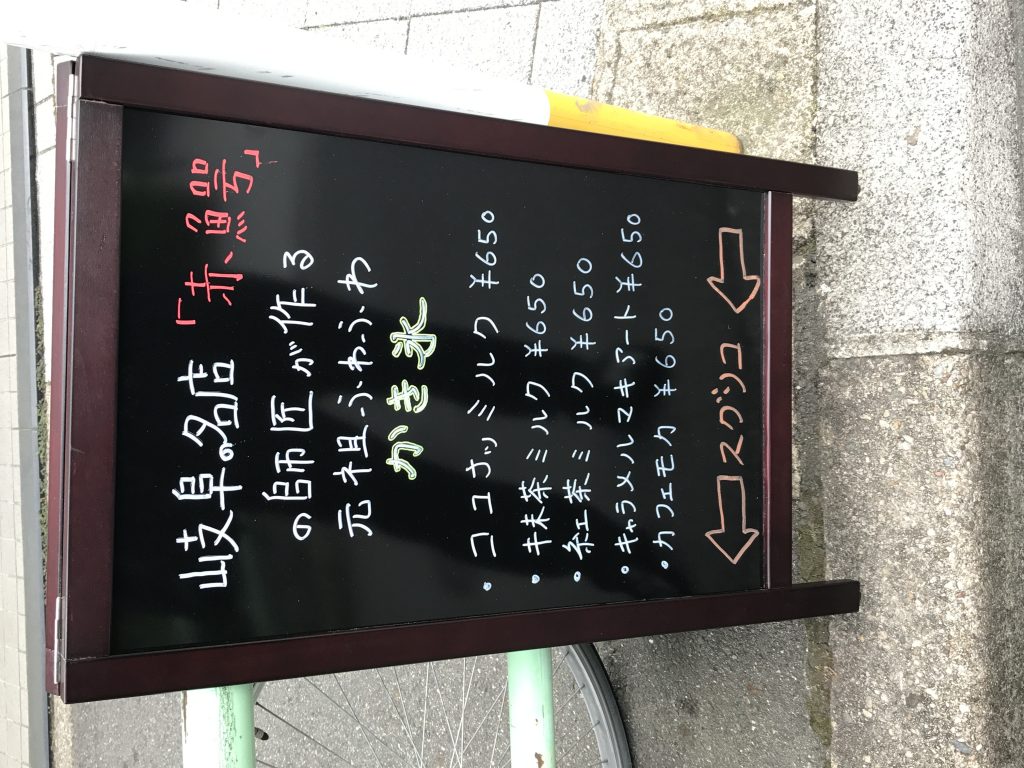 岐阜の名店「赤鰐」
の師匠が作る
元祖ふわふわ
かき氷
・ココナッミルク ¥650
・抹茶ミルク ¥650
・紅茶ミルク ¥650
・キャラメルマキアート ¥650
・カフェモカ ¥650
←スグソコ←